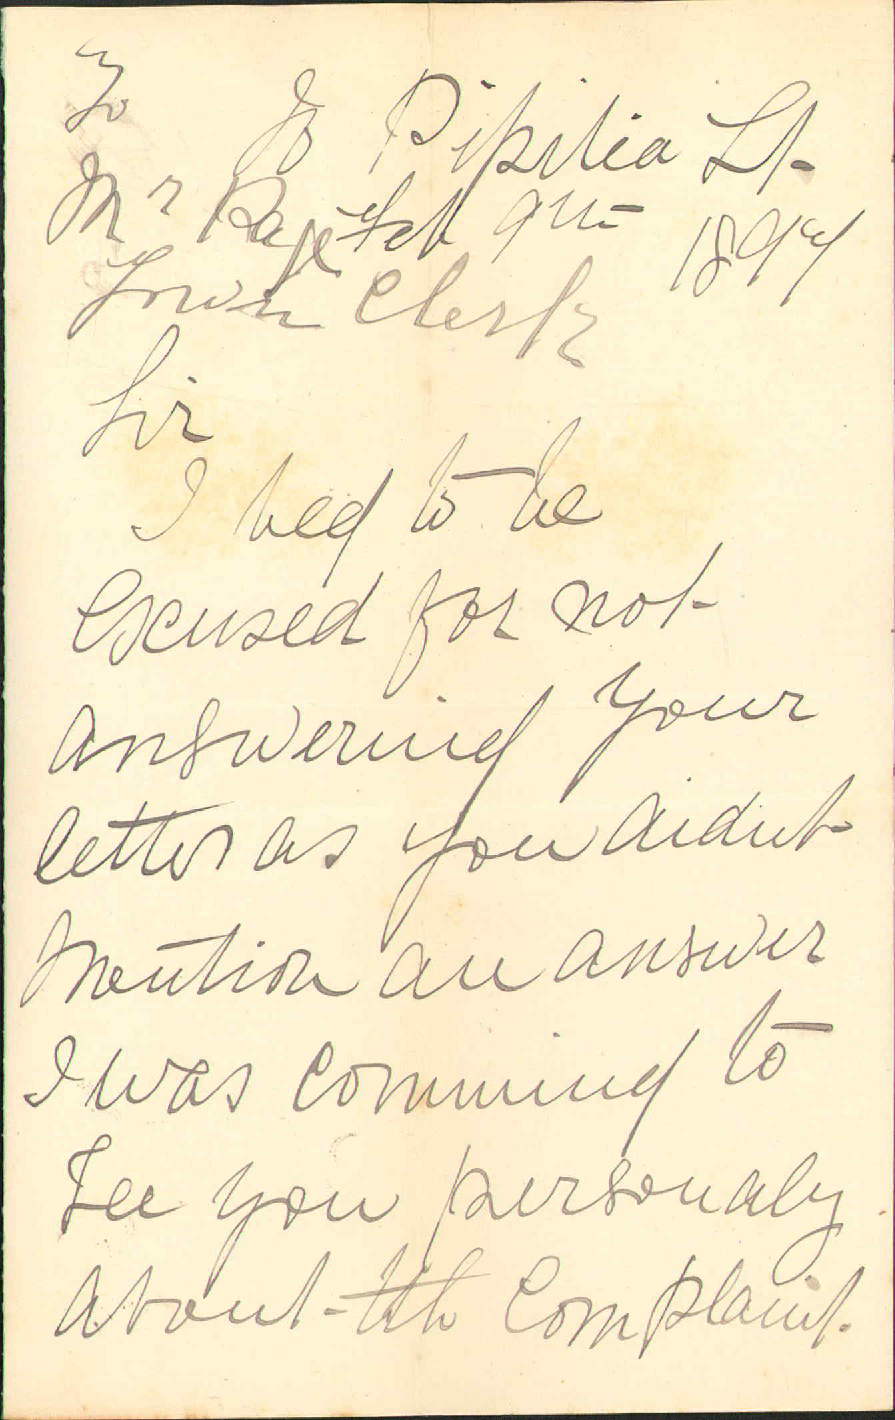 To
Pipitia St
Mr Page Feb 9th 1894
Town Clerk
Sir
I beg to be
excused for not
answering your
letter as you didnt
Mention an answer
I was comming to
See you personaly
about th Complaint.